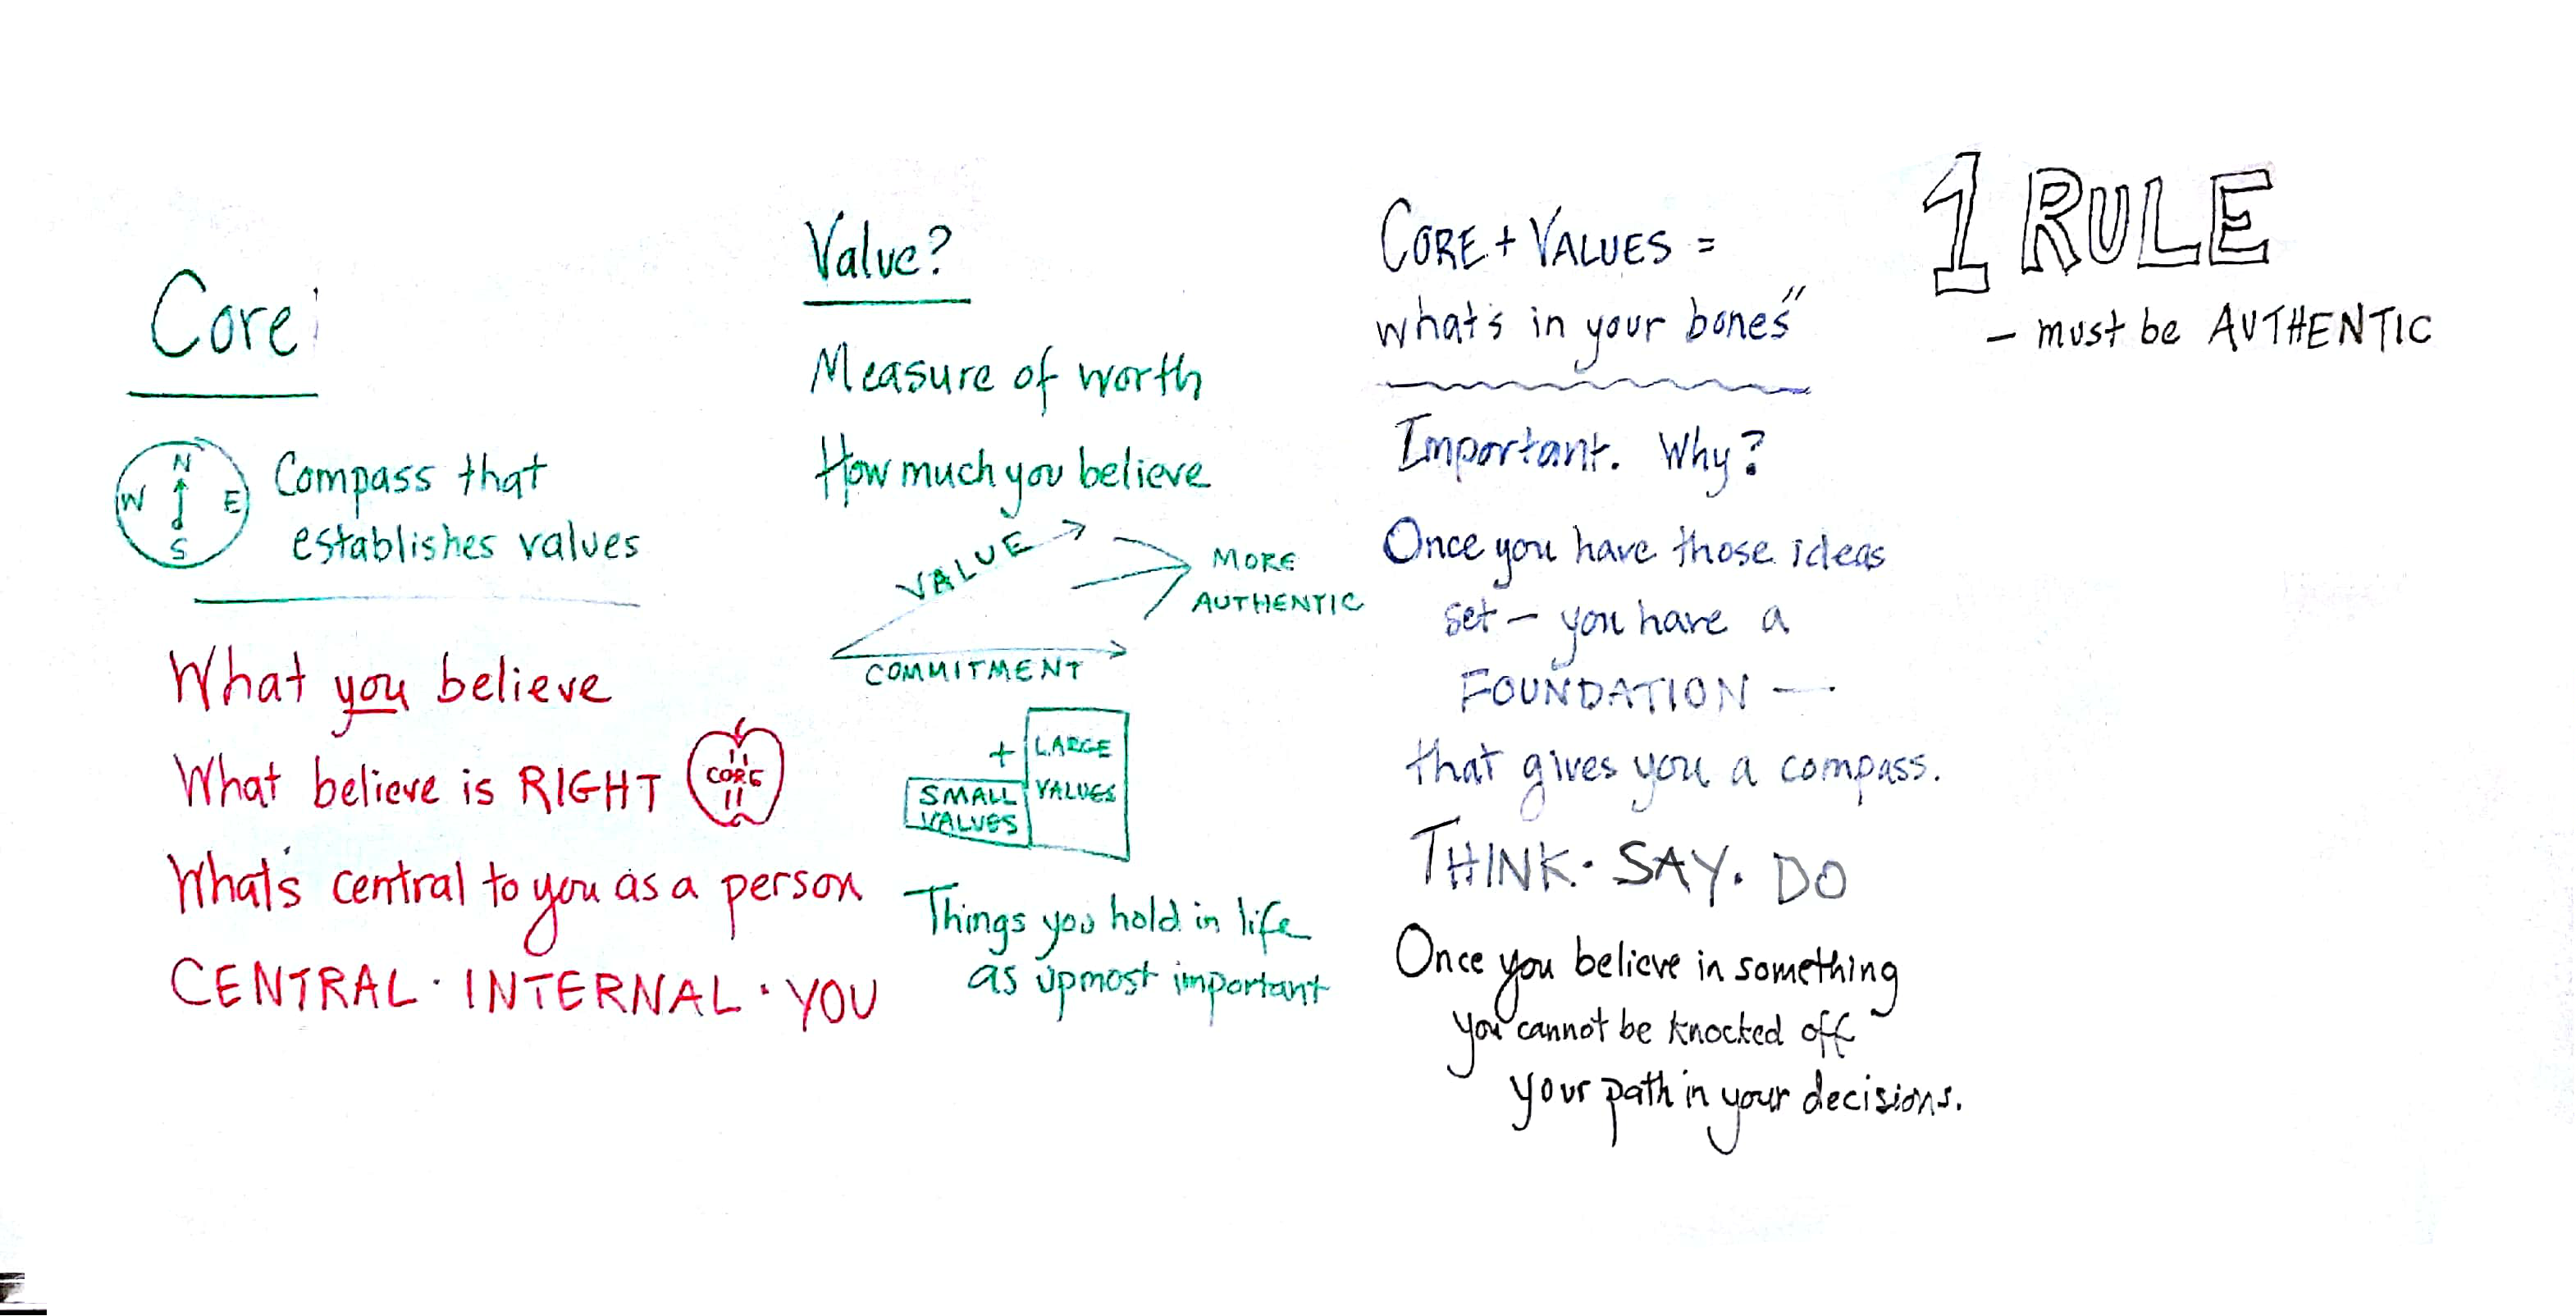 Core
N
W E
S
Compass that
establishes values
What you believe
What believe is RIGHT
CORE
What's central to you as a person
CENTRAL · INTERNAL · YOU
Value?
Measure of worth
How much you believe
VALUE
COMMITMENT
MORE
AUTHENTIC
+
SMALL
VALUES
LARGE
VALUES
Things you hold in life
as upmost important
CORE + VALUES =
what's in your bones"
Important. Why?
Once you have those ideas
set – you have a
FOUNDATION —
that gives you a compass.
THINK · SAY · DO
Once you believe in something
you cannot be knocked off
your path in your decisions.
1 RULE
– must be AUTHENTIC